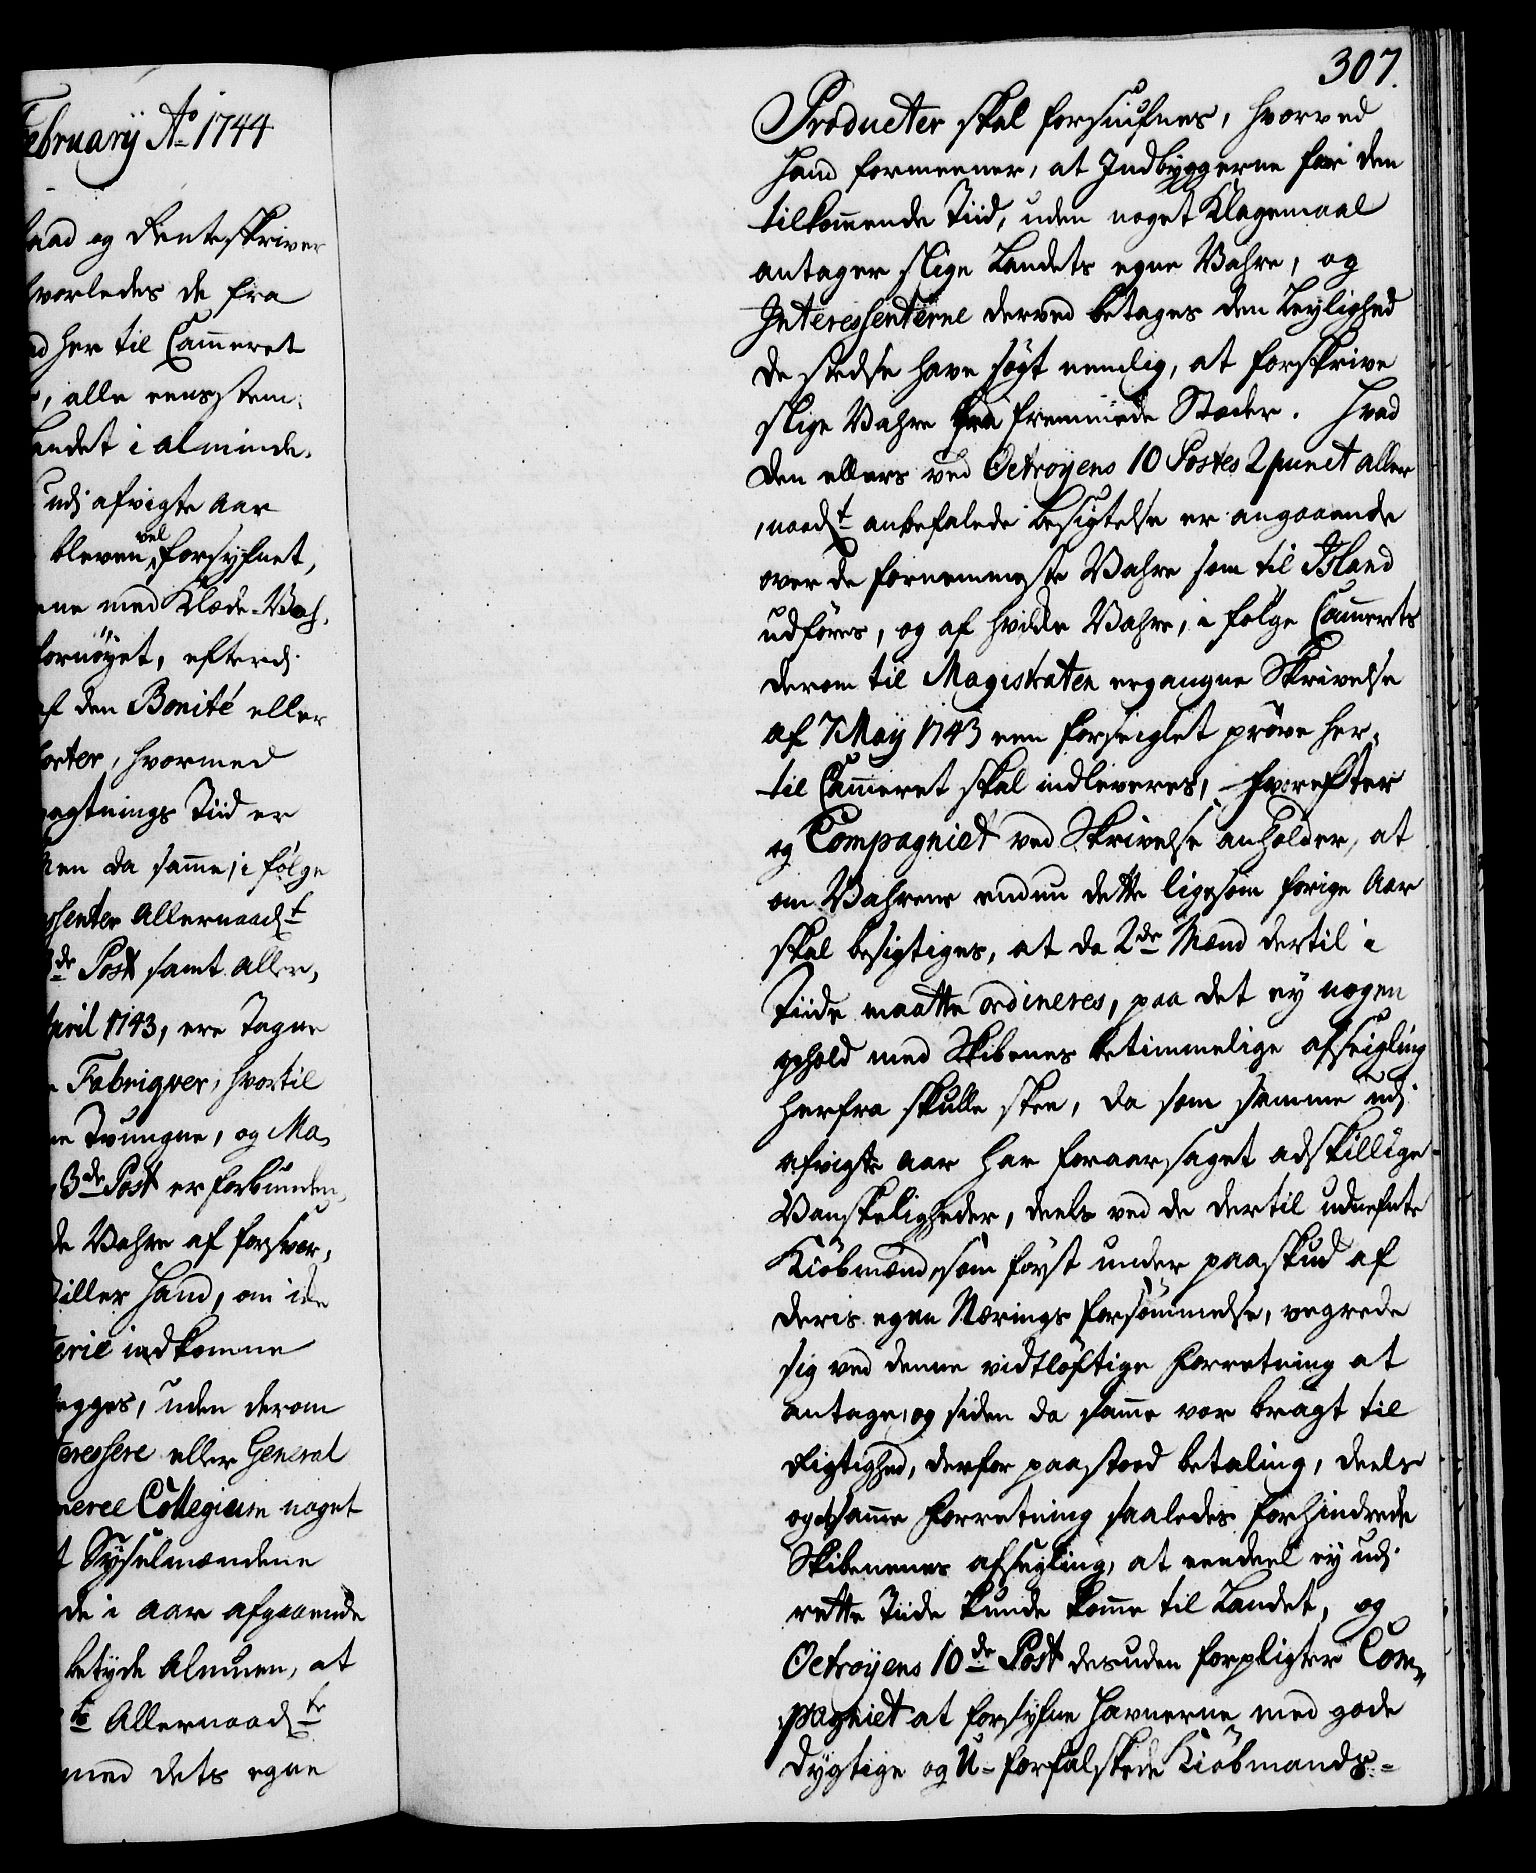 ebruarÿ Ao 1744
aad og Renteskriver
vorledes de fra
d her til Cam̄eret
, alle eensstem,
andet i alminde,
udj afvigte Aar
bleven vel forsyfnet,
ene med Klæde-Vah,
fornöyet, efterdj
af den Bonité eller
orter, hvormed
agtnings Tiid er
en da sam̄e, i fölge
ssenter Allernaadt
3de Post samt aller,
April 1743, ere Tagne
Fabriqver, hvortil
ne Tvungne, og Ma,
3de Post er forbunden,
de Vahre af forsvar,
iller Haand, om ide
erie indkomne
egges, uden derom
eressere eller General
merce Collegium noget
Sysselmændene
de i Aar afgaaende
betyde Almuen, at
te Allernaadte
med dets egne
307.
Producter skal forsiufnes, hvorved
Hand formeener, at Indbyggerne for den
tilkom̄ende Tiid, uden noget Klagemaal
antager slige Landets egne Vahre, og
Interessenterne derved betages den Leylighed
de stedse have sögt nemlig, at forskrive
slige Vahre fra fremmede Stæder. Hvad
den ellers ved Octroyens 10 Postes 2 punct aller
,naadt anbefalede Besigtelse er angaaende
over de fornemmeste Vahre som til Island
udföres, og af hvilke Vahre, i fölge Cam̄erets
derom til Magistraten ergangne Skrivelse
af 7 Maÿ 1743 een forseiglet pröve her,
til Cam̄eret skal indleveres, hvorefter
og Compagniet ved Skrivelse anholder, at
om Vahrene endnu dette ligesom forige Aar
skal besigtiges, at da 2de Mænd dertil i
Tiide maatte ordineres, paa det ey nogen
ophold med Skibenes betimmelige afseigling
herfra skulle skee, da som samme udj
afvigte Aar har foraarsaget adskillige
Vanskeligheder, deels ved de dertil udnefnte
Kiöbmænd, som först under paaskud af
deris egen Nærings forsömmelse, vegrede
sig ved denne vidtlöftige Forretning at
antage, og siden da sam̄e var bragt til
Rigtighed, derfor paastod betaling, deels
og at sam̄e Forretning saaledes forhindrede
Skibenenes afseyling, at eendeel ey udj
rette Tiide kunde kom̄e til Landet, og
Octroyens 10de Post desuden forpligter Com,,
pagniet at forsyfne Havnerne med gode
dygtige og U-forfalskede Kiöbmands-